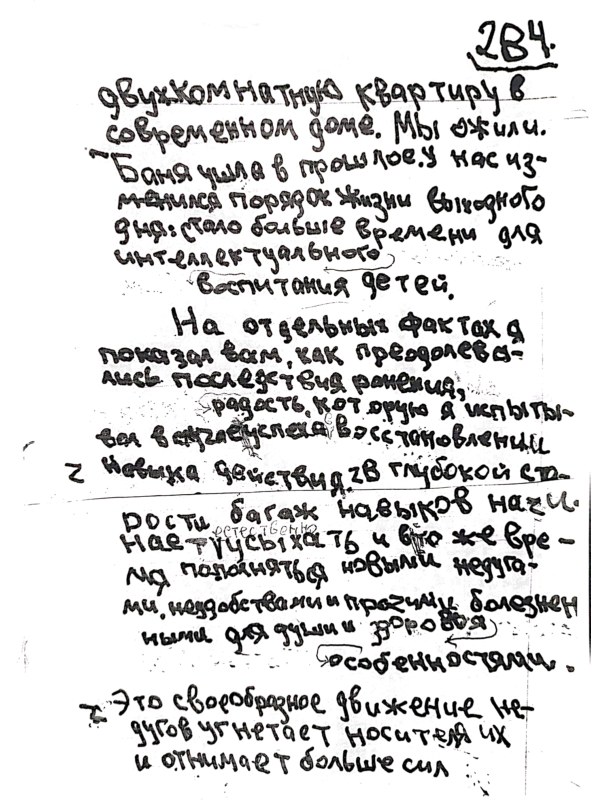 284.
двухкомнатную квартиру в
современном доме. Мы ожили.
Баня ушла в прошлое. У нас из-
менился порядок жизни выходного
дня: стало больше времени для
интеллектуального
воспитания детей.
На отдельных фактах я
показал вам, как преодолева-
лись последствия ранения,
радость, которую я испыты-
вал в случае успеха в восстановлении
Z навыка действия. В глубокой ста-
рости багаж навыков начи-
естественно
нает усыхать и в то же вре-
мя пополняться новыми недуга-
ми, неудобствами и прочими болезнен
ными для души и здоровья
особенностями.
Z Это своеобразное движение не-
дугов угнетает носителя их
и отнимает больше сил